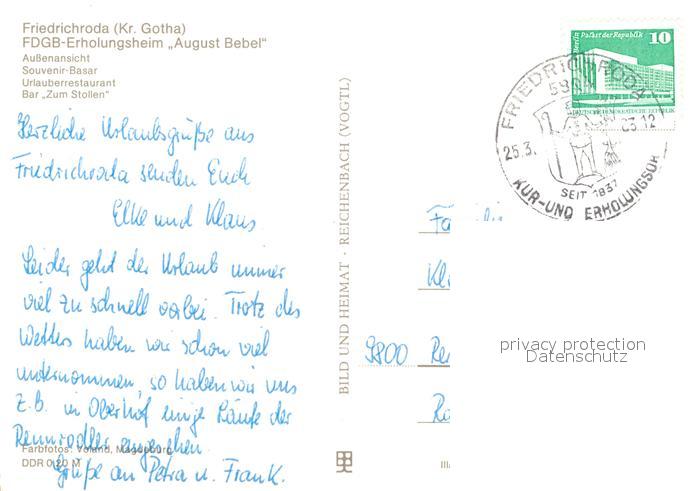 Friedrichroda (Kr. Gotha)
FDGB-Erholungsheim „August Bebel"
Außenansicht
Souvenir-Basar
Urlauberrestaurant
Bar „Zum Stollen"
Herzliche Urlaubsgrüße aus
Friedrichroda senden Euch
Elke und Klaus
Leider geht der Urlaub immer
viel zu schnell vorbei. Trotz des
Wetters haben wir schon viel
unternommen, so haben wir uns
z.B. in Oberhof einige Läufe der
Rennrodler angesehen.
Grüße an Petra u. Frank.
Farbfotos: Voland, Magdeburg
DDR 0,20 M
BILD UND HEIMAT · REICHENBACH (VOGTL)
Berlin Palast der Republik
10
DEUTSCHE DEMOKRATISCHE REPUBLIK
FRIEDRICHRODA
25.3.
83.12
SEIT 1837
KUR-UND ERHOLUNGSOR
Familie
Kl
9800 Re
privacy protection
Datenschutz